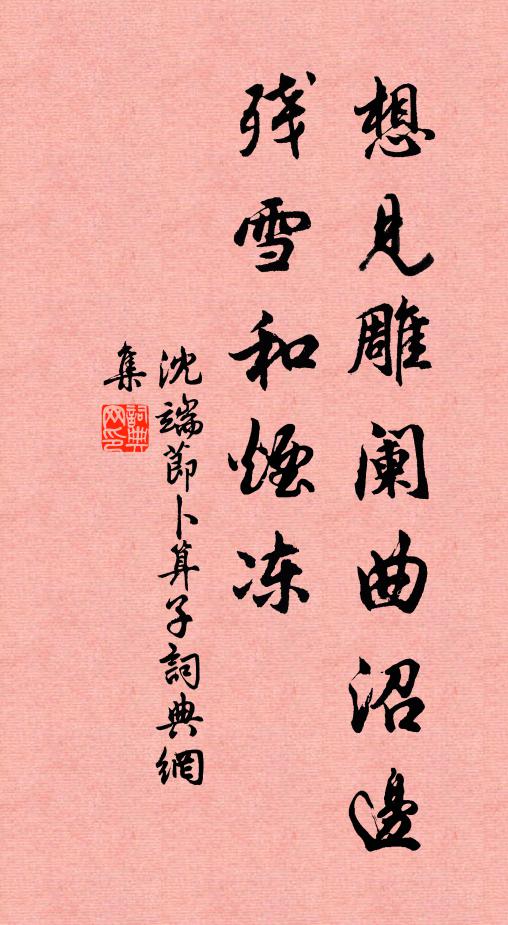 想見雕阑曲沼邊
残雪和煙冻
沈端節卜算子詞典網
集
詞典
网印